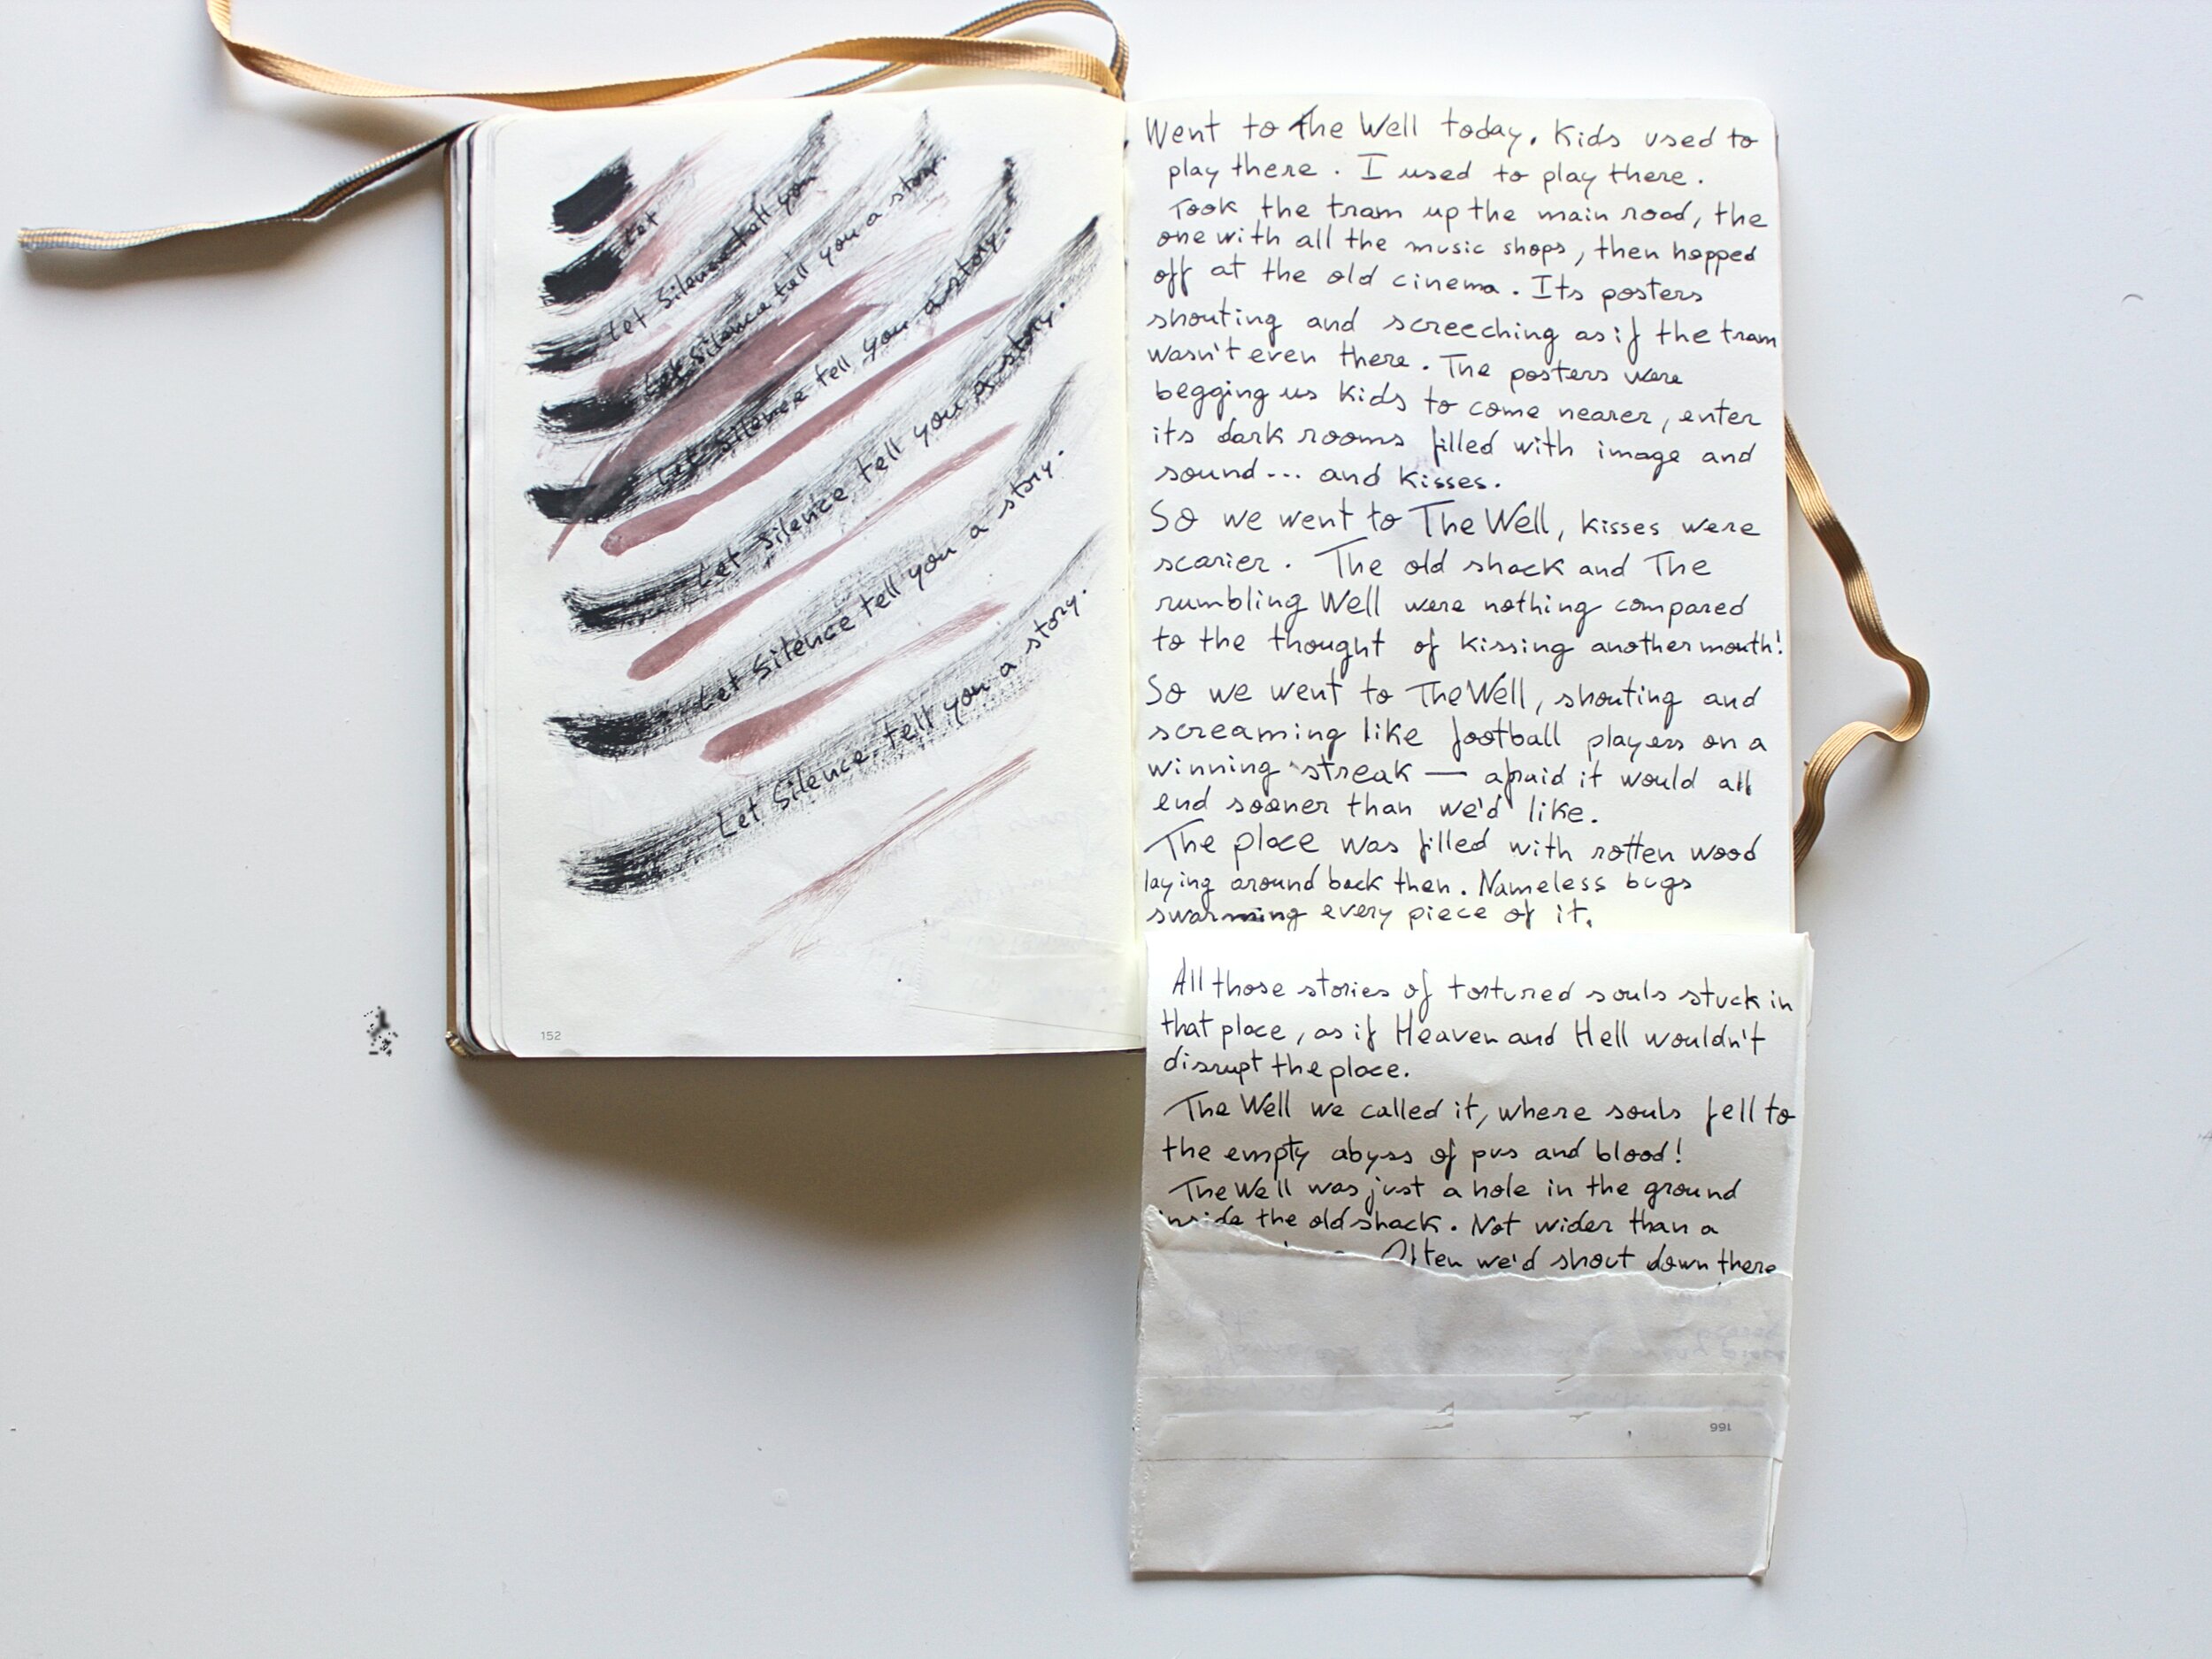 Let
Let Silence tell you
Let Silence tell you a story.
Let Silence tell you a story.
Let Silence tell you a story.
Let Silence tell you a story.
Let Silence tell you a story.
152
Went to The Well today. Kids used to
play there. I used to play there.
Took the tram up the main road, the
one with all the music shops, then hopped
off at the old cinema. Its posters
shouting and screeching as if the tram
wasn't even there. The posters were
begging us kids to come nearer, enter
its dark rooms filled with image and
sound... and kisses.
So we went to The Well, kisses were
scarier. The old shack and The
rumbling Well were nothing compared
to the thought of kissing another mouth!
So we went to The Well, shouting and
screaming like football players on a
winning streak — afraid it would all
end sooner than we'd like.
The place was filled with rotten wood
laying around back then. Nameless bugs
swarming every piece of it.
All those stories of tortured souls stuck in
that place, as if Heaven and Hell wouldn't
disrupt the place.
The Well we called it, where souls fell to
the empty abyss of pus and blood!
The Well was just a hole in the ground
inside the old shack. Not wider than a
Often we'd shout down there
166